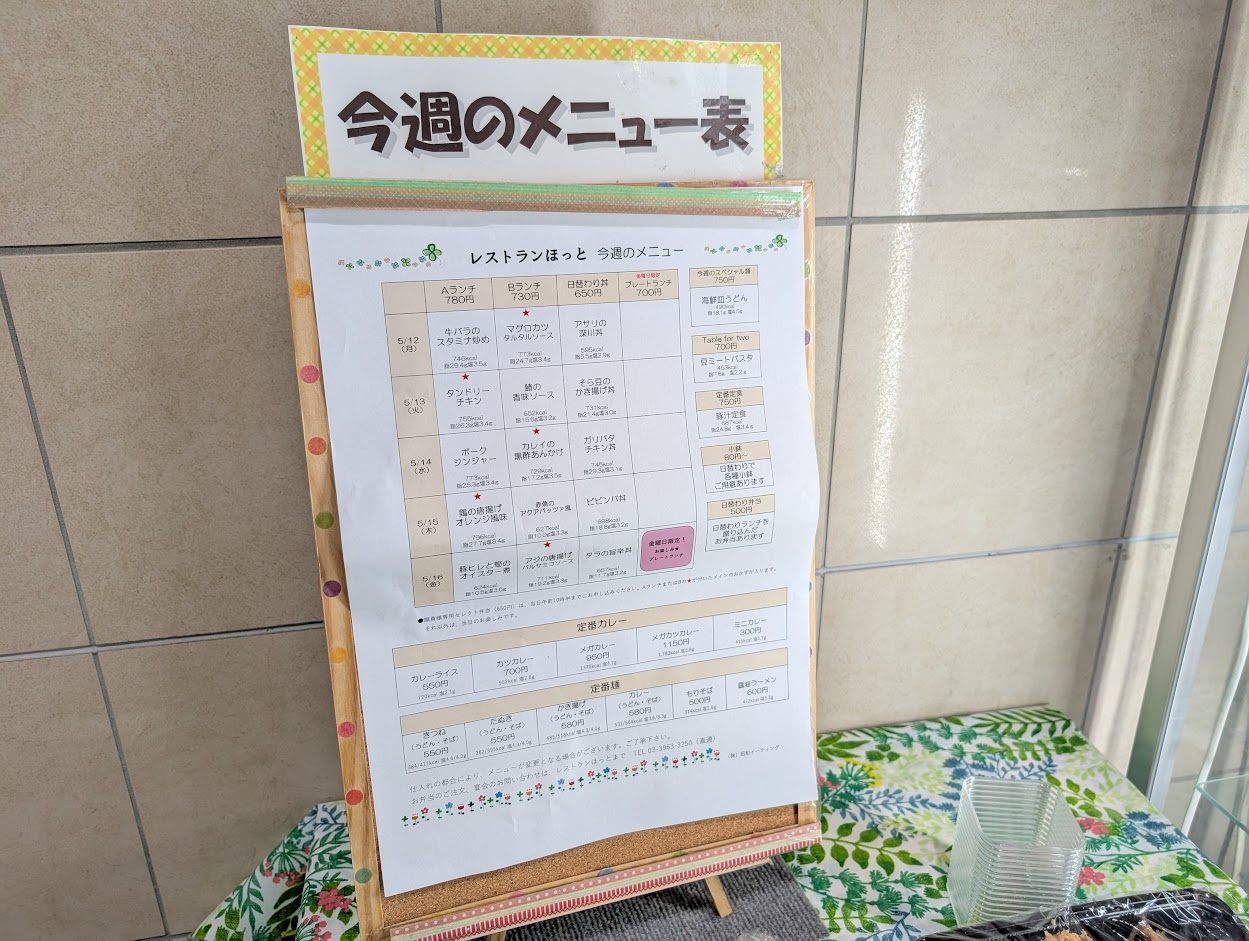 今週のメニュー表
レストランほっと 今週のメニュー
Aランチ
780円
Bランチ
730円
日替わり丼
650円
金曜日限定
プレートランチ
700円
5/12
(月)
牛バラの
スタミナ炒め
746kcal
脂29.4g塩3.5g
★
マグロカツ
タルタルソース
773kcal
脂24.7g塩3.4g
アサリの
深川丼
595kcal
脂5.5g塩2.9g
5/13
(火)
★
タンドリー
チキン
755kcal
脂26.3g塩3.4g
鯖の
香味ソース
652kcal
脂15.6g塩3.2g
そら豆の
かき揚げ丼
731kcal
脂21.4g塩3.0g
5/14
(水)
ポーク
ジンジャー
773kcal
脂25.3g塩3.4g
★
カレイの
黒酢あんかけ
729kcal
脂17.2g塩3.5g
ガリバタ
チキン丼
745kcal
脂29.3g塩3.1g
5/15
(木)
★
鶏の唐揚げ
オレンジ風味
796kcal
脂27.7g塩3.4g
赤魚の
アクアパッツァ風
627kcal
脂10.0g塩3.3g
ビビンバ丼
698kcal
脂18.8g塩3.2g
5/16
(金)
豚ヒレと筍の
オイスター煮
624kcal
脂10.8g塩3.6g
★
アジの唐揚げ
バルサミコソース
711kcal
脂19.2g塩3.3g
タラの旨辛丼
657kcal
脂11.7g塩3.2g
金曜日限定!
お楽しみ★
プレートランチ
今週のスペシャル麺
750円
海鮮皿うどん
490kcal
脂18.1g 塩4.5g
Table for two
700円
豆ミートパスタ
453kcal
脂7.6g 塩2.2g
定番定食
750円
豚汁定食
687kcal
脂24.8g 塩3.4g
小鉢
80円~
日替わりで
各種小鉢
ご用意あります
日替わり弁当
500円
日替わりランチを
盛り込んだ
お弁当あります
●職員様専用セレクト弁当(650円)は、当日午前10時半までにお申し込みください。AランチまたはBの★が付いたメインのおかずが入ります。
それ以外は、当日のお楽しみです。
定番カレー
カレーライス
550円
カツカレー
700円
メガカレー
950円
メガカツカレー
1150円
ミニカレー
300円
定番麺
きつね
(うどん・そば)
550円
たぬき
(うどん・そば)
550円
かき揚げ
(うどん・そば)
580円
カレー
(うどん・そば)
580円
もりそば
500円
醤油ラーメン
600円
仕入れの都合により、メニューが変更となる場合がございます。ご了承下さい。
お弁当のご注文、宴会のお問い合わせは、レストランほっとまで TEL 03-3963-3250(直通)
(株)昭和イーティング